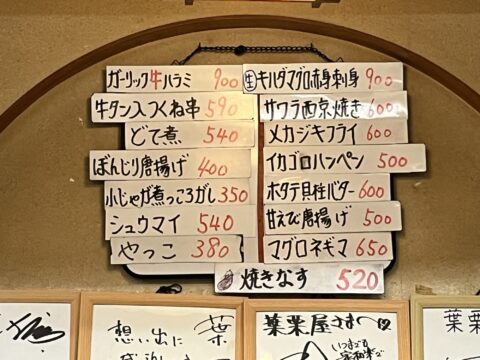 ガーリック牛ハラミ 900
牛タン入つくね串 590
どて煮 540
ぼんじり唐揚げ 400
小じゃが煮っころがし 350
シュウマイ 540
やっこ 380
生 キハダマグロ赤身刺身 900
サワラ西京焼き 600
メカジキフライ 600
イカゴロハンペン 500
ホタテ貝柱バター 600
甘えび唐揚げ 500
マグロネギマ 650
焼きなす 520
想い出に
葉
葉菜屋さまへ
いつまでも
葉